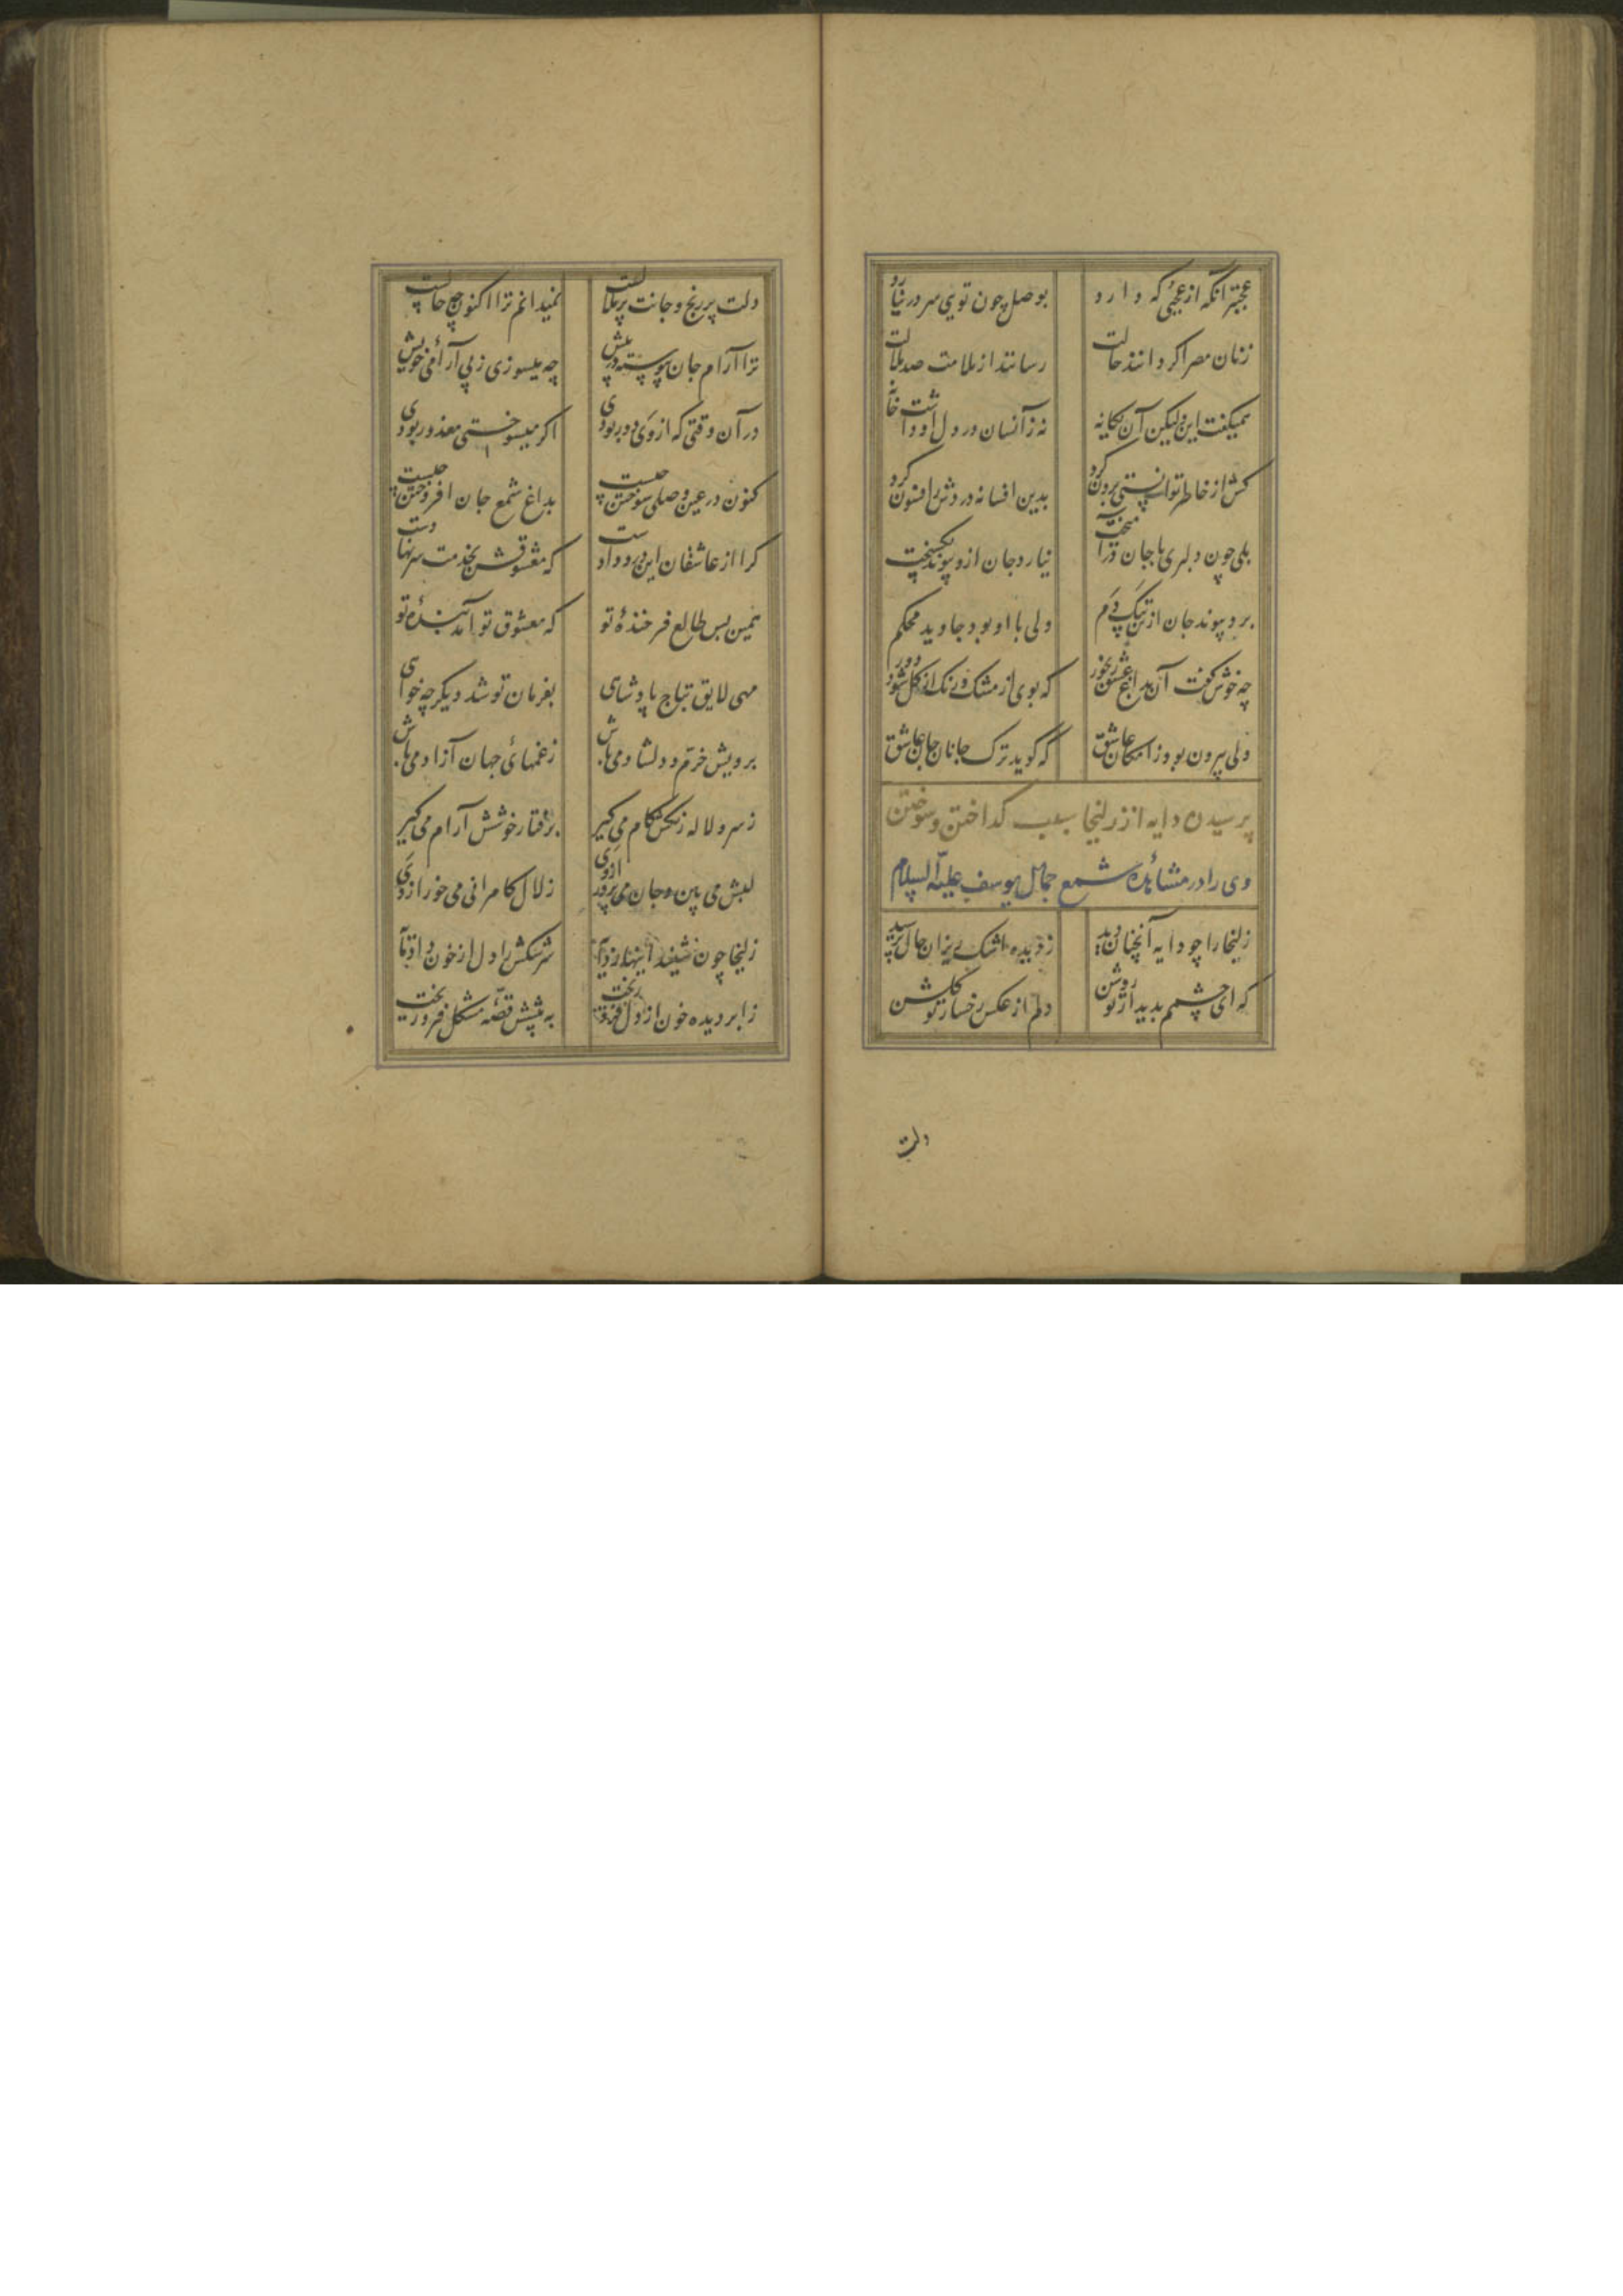 عجبتر آنکه از عجبی که دارد بوصل چون تویی سر در نیارد
زنان مصر اگر دانند حالت رسانند از ملامت صد ملالت
همیگفت این ولیکن آن یگانه نه زآنسان در دل او داشت خانه
کش از خاطر توانستی برون کرد بدین افسانه دردش را فسون کرد
بلی چون دلبری با جان درآمیخت نیارد جان ازو پیوند بگسیخت
برد پیوند جان از تن بیکدم ولی با او بود جاوید محکم
چه خوش گفت آن بداغ عشق رنجور که بوی از مشک و رنگ از گل شود دور
ولی بیرون بود ز امکان عاشق که گوید ترک جانان جان عاشق
پرسیدن دایه از زلیخا سبب گداختن و سوختن
وی را در مشاهدۀ شمع جمال یوسف علیه السلام
زلیخا را چو دایه آنچنان دید ز دیده اشک ریزان حال پرسید
که ای چشمم بدیدار تو روشن دلم از عکس رخسار تو گلشن
دلت
دلت پر رنج و جانت پر ملالست نمیدانم ترا اکنون چه حالست
ترا آرام جان پیوسته در پیش چه میسوزی ز بی آرامی خویش
در آن وقتی که از وی دور بودی اگر میسوختی معذور بودی
کنون در عین وصلی سوختن چیست بداغ شمع جان افروختن چیست
کرا از عاشقان این دست دادست که معشوقش بخدمت سر نهادست
همین بس طالع فرخندۀ تو که معشوق تو آمد بندۀ تو
مهی لایق بتاج پادشاهی بفرمان تو شد دیگر چه خواهی
برویش خرم و دلشاد میباش ز غمهای جهان آزاد میباش
ز سرو لاله رنگش کام می گیر برفتار خوشش آرام می گیر
لبش می بین و جان می پرور از وی زلال کامرانی می خور از وی
زلیخا چون شنید اینها ز دایه سرشکش را دل از خون داد مایه
ز ابر دیده خون از دل فرو ریخت به پیشش قصۀ مشکل فرو ریخت